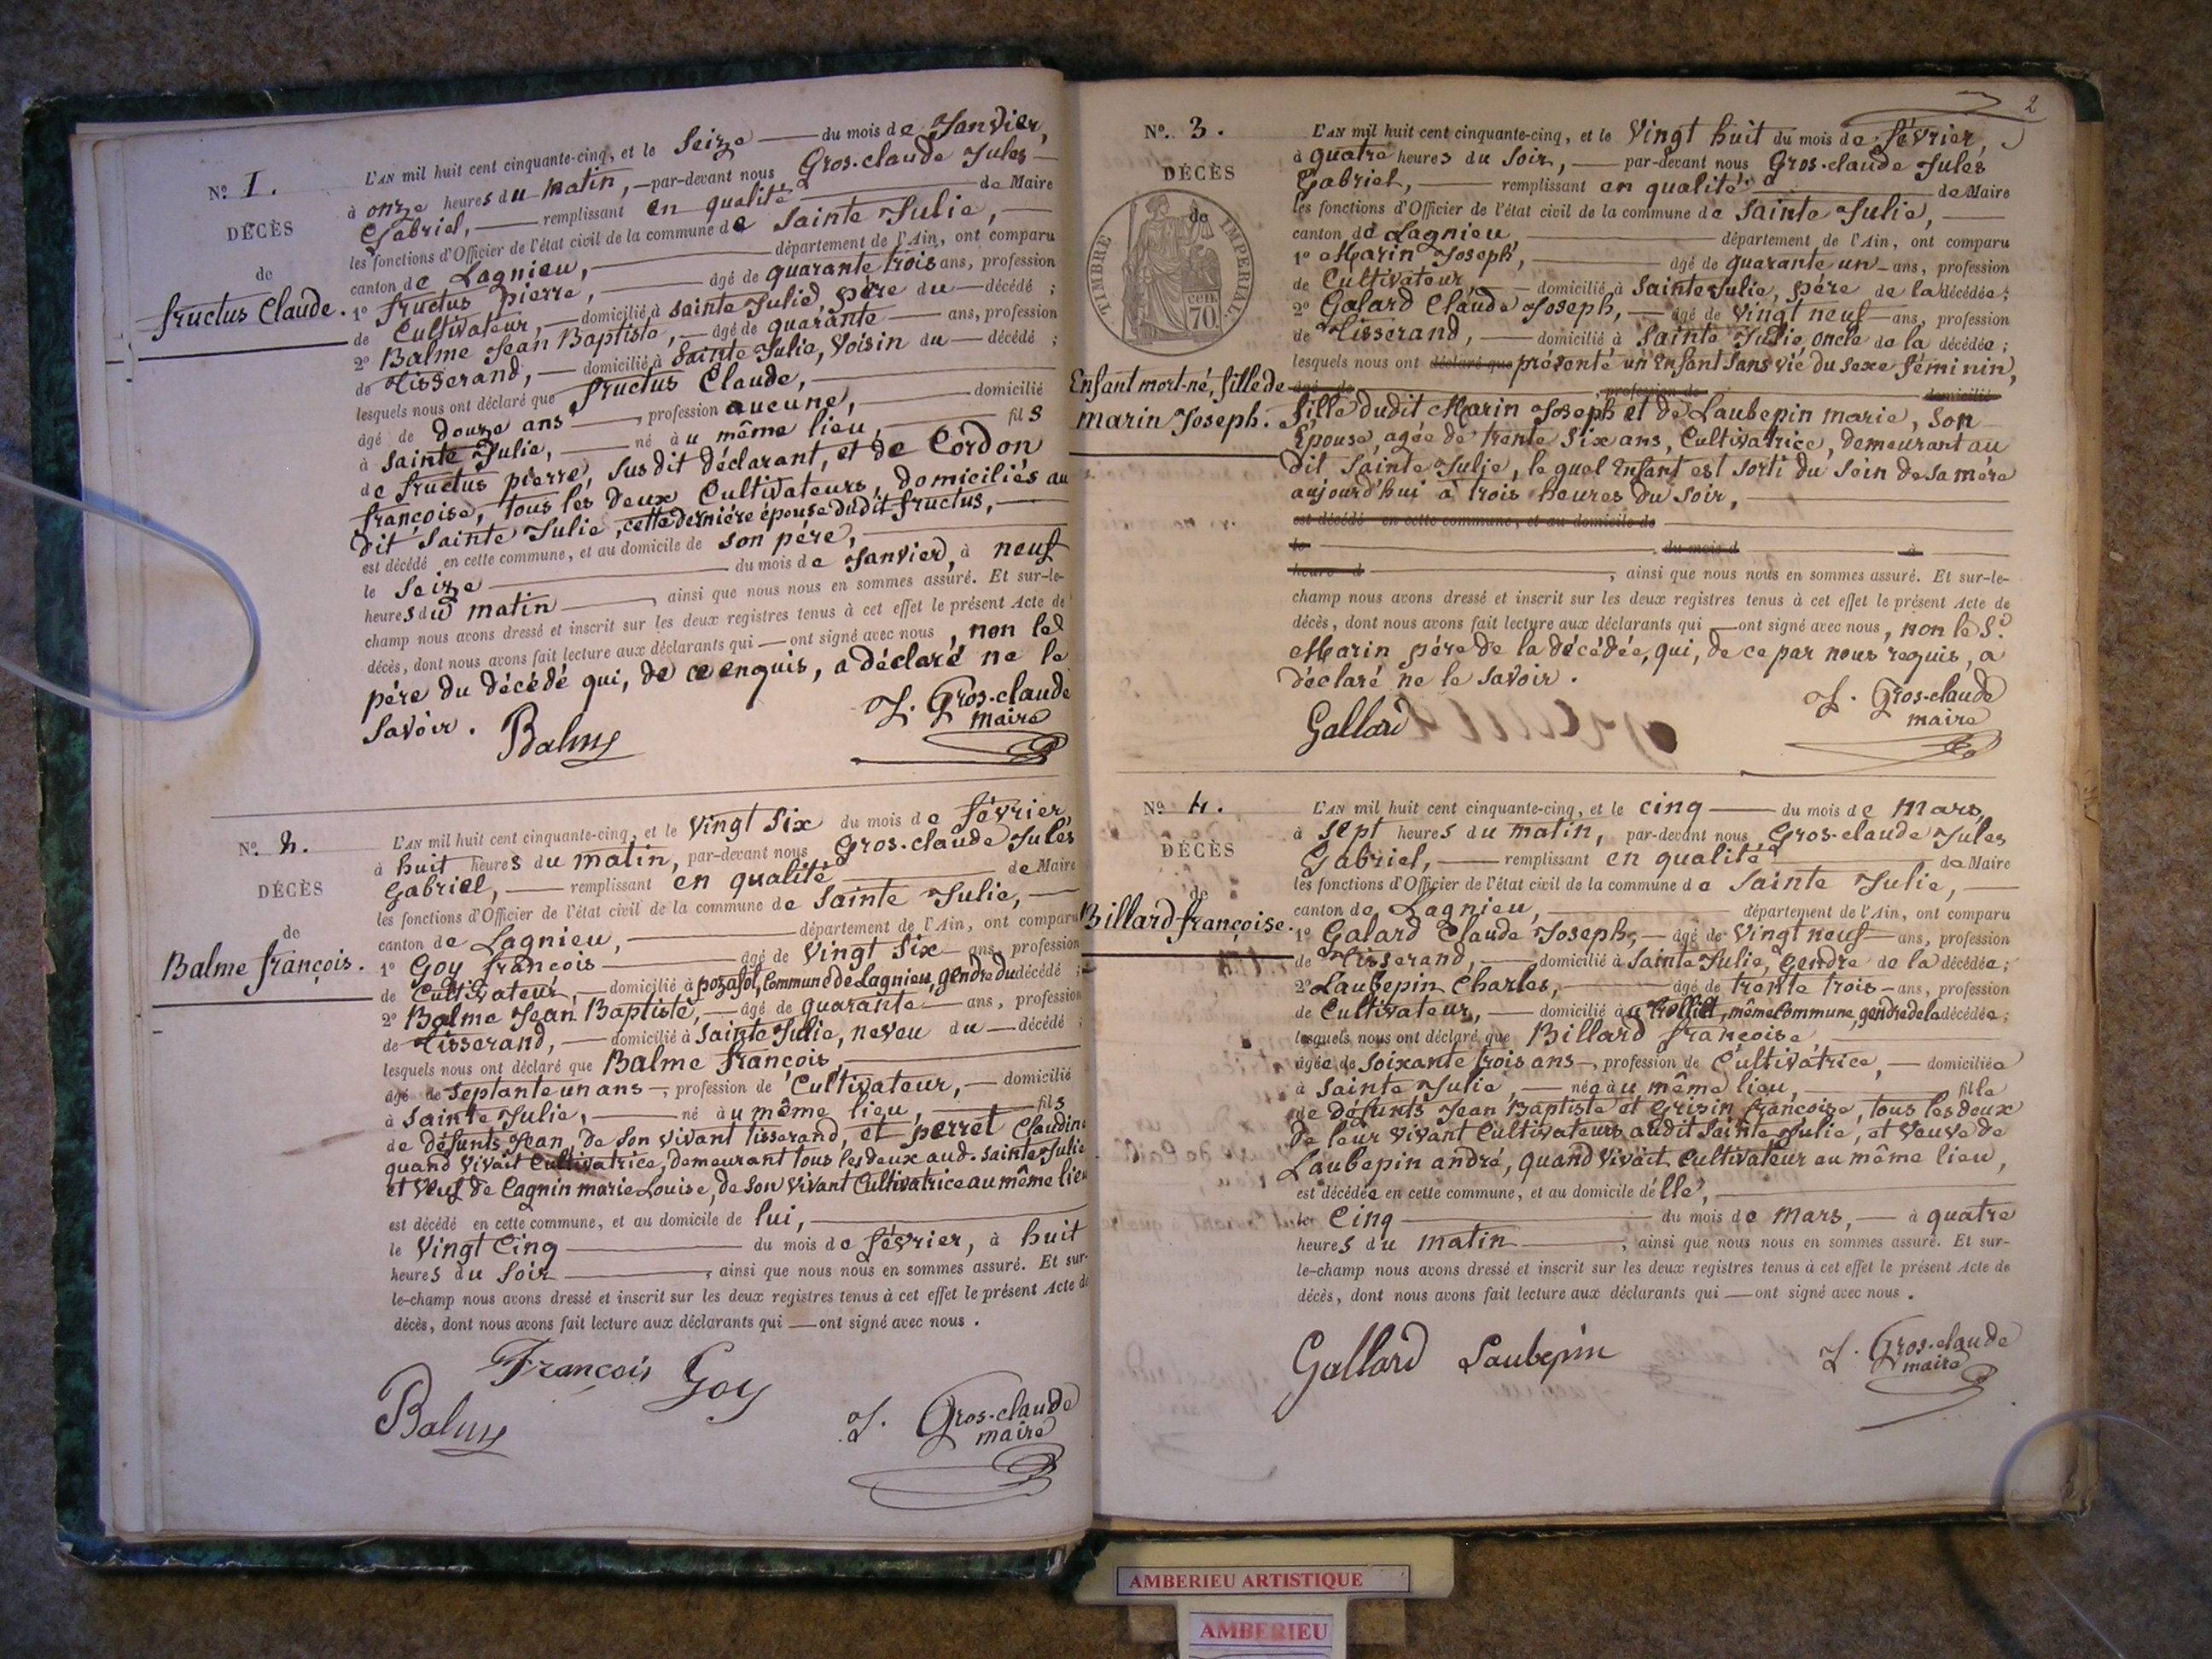 N.º 1.
DÉCÈS
de
fructus Claude.
L'AN mil huit cent cinquante-cinq, et le Seize du mois de Janvier,
à onze heures du matin, par-devant nous Gros-claude Jules
Gabriel, remplissant en qualité de Maire
les fonctions d'Officier de l'état civil de la commune de Sainte Julie,
canton de Lagnieu, département de l'Ain, ont comparu
1º fructus pierre, âgé de quarante trois ans, profession
de Cultivateur, domicilié à Sainte Julie, père du décédé ;
2º Balme Jean Baptiste, âgé de quarante ans, profession
de Tisserand, domicilié à Sainte Julie, Voisin du décédé ;
lesquels nous ont déclaré que fructus Claude,
âgé de douze ans, profession aucune, domicilié
à Sainte Julie, né au même lieu, fils
de fructus pierre, susdit déclarant, et de Cordon
françoise, tous les deux Cultivateurs, domiciliés au
dit Sainte Julie, cette dernière épouse dudit fructus,
est décédé en cette commune, et au domicile de son père,
le Seize du mois de Janvier, à neuf
heures du matin, ainsi que nous nous en sommes assuré. Et sur-le-
champ nous avons dressé et inscrit sur les deux registres tenus à cet effet le présent Acte de
décès, dont nous avons fait lecture aux déclarants qui ont signé avec nous, non led
père du décédé qui, de ce enquis, a déclaré ne le
Savoir.
Balme
J. Gros-claude
maire
N.º 2.
DÉCÈS
de
Balme françois.
L'AN mil huit cent cinquante-cinq, et le Vingt Six du mois de février,
à huit heures du matin, par-devant nous Gros-claude Jules
Gabriel, remplissant en qualité de Maire
les fonctions d'Officier de l'état civil de la commune de Sainte Julie,
canton de Lagnieu, département de l'Ain, ont comparu
1º Goy françois âgé de Vingt Six ans, profession
de Cultivateur, domicilié à pozafol, Commune de Lagnieu, gendre du décédé ;
2º Balme Jean Baptiste, âgé de quarante ans, profession
de Tisserand, domicilié à Sainte Julie, neveu du décédé ;
lesquels nous ont déclaré que Balme françois,
âgé de septante un ans, profession de Cultivateur, domicilié
à Sainte Julie, né au même lieu, fils
de défunts Jean, de son vivant tisserand, et perret Claudine
quand vivait Cultivatrice, demeurant tous les deux aud. Sainte Julie
et Veuf de Cagnin marie Louise, de son Vivant Cultivatrice au même lieu
est décédé en cette commune, et au domicile de lui,
le Vingt Cinq du mois de février, à huit
heures du soir, ainsi que nous nous en sommes assuré. Et sur-
le-champ nous avons dressé et inscrit sur les deux registres tenus à cet effet le présent Acte de
décès, dont nous avons fait lecture aux déclarants qui ont signé avec nous.
François Goy
Balme
J. Gros-claude
maire
2
N.º 3.
DÉCÈS
de
TIMBRE IMPERIAL
70 cen
Enfant mort-né, fille de
marin Joseph.
L'AN mil huit cent cinquante-cinq, et le Vingt huit du mois de février,
à quatre heures du Soir, par-devant nous Gros-claude Jules
Gabriel, remplissant en qualité de Maire
les fonctions d'Officier de l'état civil de la commune de Sainte Julie,
canton de Lagnieu, département de l'Ain, ont comparu
1º Marin Joseph, âgé de quarante un ans, profession
de Cultivateur, domicilié à Sainte Julie, père de la décédée ;
2º Galard Claude Joseph, âgé de Vingt neuf ans, profession
de Tisserand, domicilié à Sainte Julie oncle de la décédée ;
lesquels nous ont déclaré que présenté un Enfant Sans vie du sexe féminin,
âgé de, profession de domicilié
fille dudit Marin Joseph et de Laubepin marie, son
Epouse, agée de trente Six ans, Cultivatrice, demeurant au
dit Sainte Julie, lequel Enfant est sorti du sein de sa mère
aujourd'hui à trois heures du soir,
est décédé en cette commune, et au domicile de
le du mois d à
heure d, ainsi que nous nous en sommes assuré. Et sur-le-
champ nous avons dressé et inscrit sur les deux registres tenus à cet effet le présent Acte de
décès, dont nous avons fait lecture aux déclarants qui ont signé avec nous, non le S.r
Marin père de la décédée, qui, de ce par nous requis, a
déclaré ne le savoir.
Gallard
J. Gros-claude
maire
N.º 4.
DÉCÈS
de
Billard françoise.
L'AN mil huit cent cinquante-cinq, et le cinq du mois de Mars,
à sept heures du matin, par-devant nous Gros-claude Jules
Gabriel, remplissant en qualité de Maire
les fonctions d'Officier de l'état civil de la commune de Sainte Julie,
canton de Lagnieu, département de l'Ain, ont comparu
1º Galard Claude Joseph, âgé de Vingt neuf ans, profession
de Tisserand, domicilié à Sainte Julie, Gendre de la décédée ;
2º Laubepin Charles, âgé de trente trois ans, profession
de Cultivateur, domicilié au trolliet, même Commune, gendre de la décédée ;
lesquels nous ont déclaré que Billard françoise,
âgée de soixante trois ans, profession de Cultivatrice, domiciliée
à Sainte Julie, née au même lieu, fille
de défunts Jean Baptiste et Grisin françoise, tous les deux
de leur vivant Cultivateurs audit Sainte Julie, et veuve de
Laubepin andré, quand Vivait Cultivateur au même lieu,
est décédée en cette commune, et au domicile d'elle,
le Cinq du mois de Mars, à quatre
heures du matin, ainsi que nous nous en sommes assuré. Et sur-
le-champ nous avons dressé et inscrit sur les deux registres tenus à cet effet le présent Acte de
décès, dont nous avons fait lecture aux déclarants qui ont signé avec nous.
Gallard Laubepin
J. Gros-claude
maire
AMBERIEU ARTISTIQUE
AMBERIEU